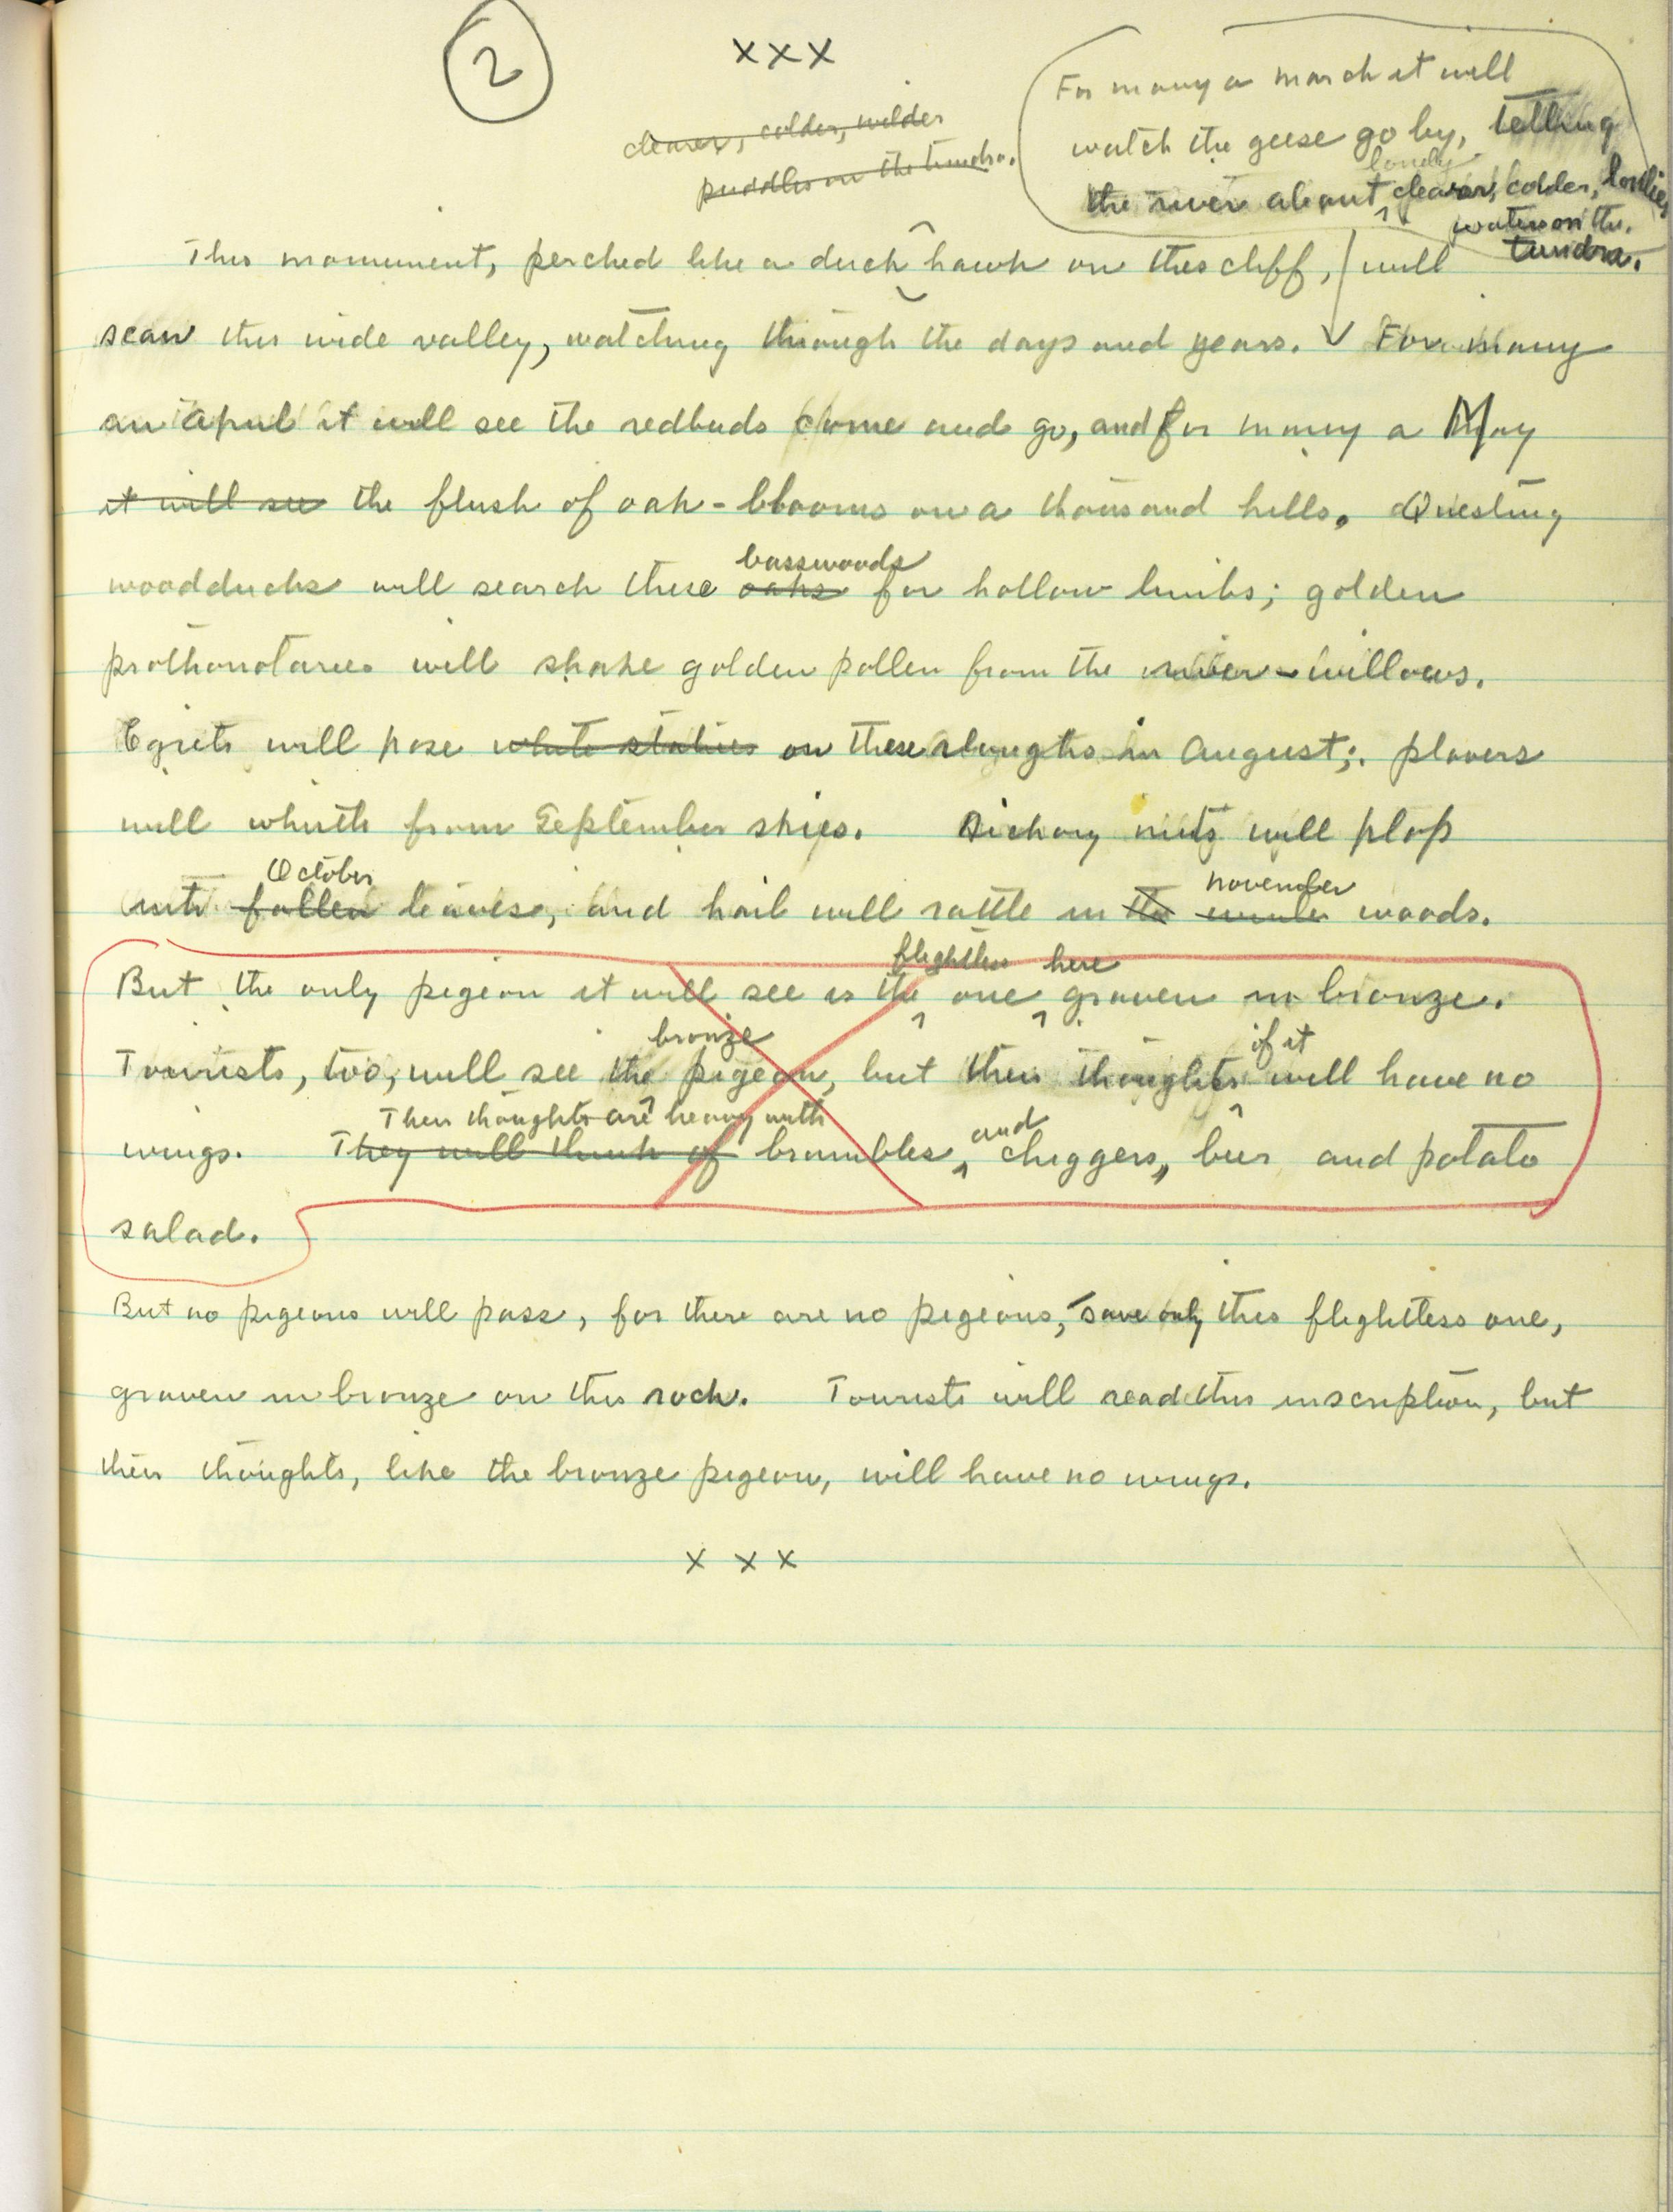 2
x x x
clearer, colder, wilder
puddles on the tundra.
For many a march it will
watch the geese go by, telling
lonely
the river about clearer, colder, lonlier
water on the
tundra.
This monument, perched like a duck hawk on this cliff, will
scan this wide valley, watching through the days and years. For many
an April it will see the redbuds come and go, and for many a May
it will see the flush of oak-blooms on a thousand hills. Questing
basswoods
woodducks will search these oaks for hollow limbs; golden
prothonotaries will shake golden pollen from the river-willows.
Egrets will pose white statues on these sloughs in August; plovers
will whistle from September skies. Hickory nuts will plop
October november
into fallen leaves, and hail will rattle in the winter woods.
flightless here
But the only pigeon it will see is the one graven in bronze.
bronze if it
Tourists, too, will see the pigeon, but their thoughts will have no
Their thoughts are heavy with
and
wings. They will think of brambles, chiggers, beer and potato
salad.
But no pigeons will pass, for there are no pigeons, save only this flightless one,
graven in bronze on this rock. Tourists will read this inscription, but
their thoughts, like the bronze pigeon, will have no wings.
x x x